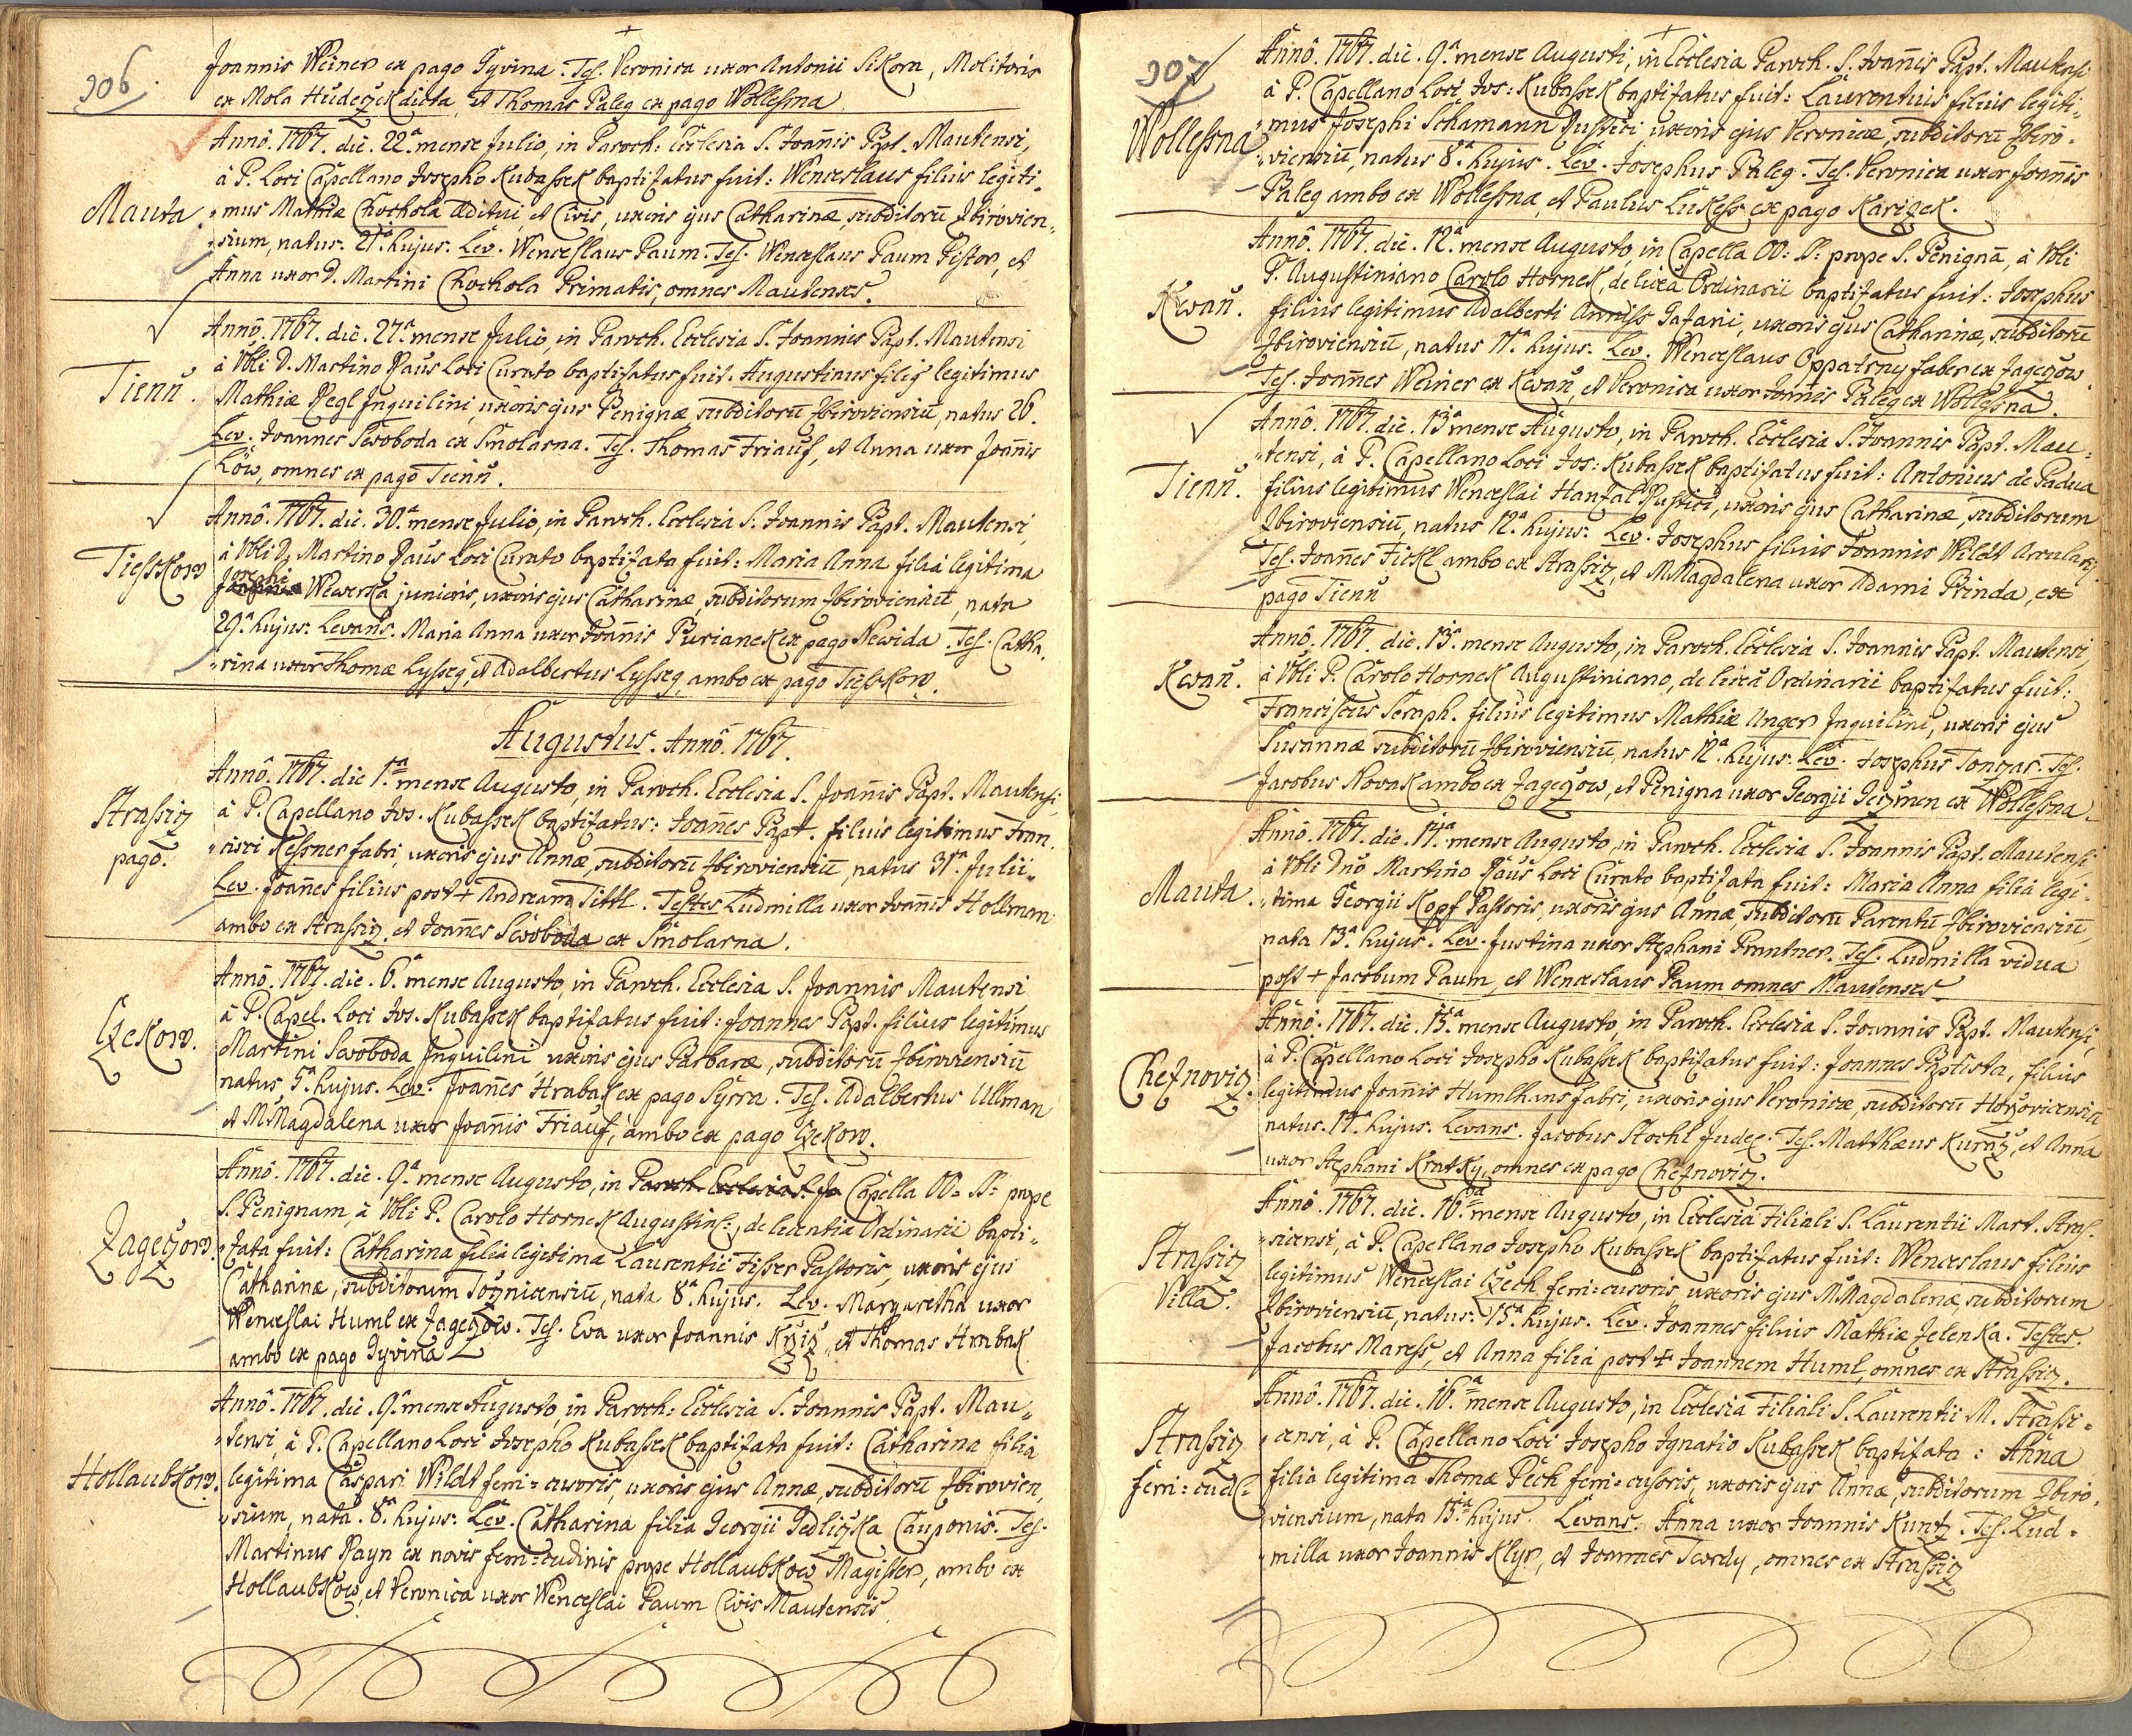 306.
Joannis Weiner ex pago Gyvina. Tes. Veronica uxor Antonii Sikora, Molitoris
ex Mola Hudeczek dicta, et Thomas Paleg ex pago Wollessna
Annô. 1767. die. 22ª mense Julio, in Paroch: Ecclesia S. Joannis Bapt. Mautensi,
à P. Loci Capellano Josepho Kubassek baptizatus fuit: Wenceslaus filius legiti„
Mauta. „mus Mathiæ Chochola Æditui, et Civis, uxoris ejus Catharinæ, subditorũ Zbirovien„
„sium, natus. 21ª hujus. Lev. Wenceslaus Paum. Tes. Wenceslaus Paum Pistor, et
Anna uxor D. Martini Chochola Primatis, omnes Mautenses.
Annô. 1767. die. 27ª mense Julio, in Paroch. Ecclesia S. Joannis Bapt. Mautensi
à Vbli D. Martino Paũs Loci Curato baptizatus fuit. Augustinus filius legitimus
Tienũ. Mathiæ Pegl Inquilini, uxoris ejus Benignæ subditorũ Zbiroviensiũ, natus 26.
Lev. Joannes Swoboda ex Smolarna. Tes. Thomas Friauf, et Anna uxor Joañis
Löw, omnes ex pagô Tienũ.
Annô. 1767. die. 30ª mense Julio, in Paroch. Ecclesia S. Joannis Bapt. Mautensi,
à Vbli D. Martino Paũs Loci Curato baptizata fuit: Maria Anna filia legitima
Tiesskow Josephi Wewerka junioris, uxoris ejus Catharinæ, subditorum Zbiroviensiũ, nata
29ª hujus. Levans. Maria Anna uxor Joañis Burianek ex pago Newida. Tes. Catha„
„rina uxor Thomæ Lysseg, et Adalbertus Lysseg, ambo ex pago Tiesskow.
Augustus. Annô. 1767.
Annô. 1767. die 1ª mense Augusto, in Paroch. Ecclesia S. Joañis Bapt. Mautensi,
Strassicz à P. Capellano Jos. Kubassek baptizatus: Joañes Bapt. filius legitimus Fran„
pagô. „cisci Kessner fabri, uxoris ejus Annæ, subditorũ Zbiroviensiũ, natus 31ª Julii.
Lev. Joañes filius post + Andream Tittl. Testes Ludmilla uxor Joañis Hollman
ambo ex Strassicz, et Joañes Swoboda ex Smolarna.
Annô. 1767. die. 6ª mense Augusto, in Paroch. Ecclesia S. Joannis Mautensi
à P. Capel. Loci Jos. Kubassek baptizatus fuit: Joannes Bapt. filius legitimus
Czekow. Martini Swoboda Inquilini, uxoris ejus Barbaræ, subditorũ Zbiroviensiũ
natus 5ª hujus. Lev. Joañes Hrabak ex pago Syrra. Tes. Adalbertus Ullman
et M.Magdalena uxor Joañis Friauf, ambo ex pago Czekow.
Annô. 1767. die. 9ª mense Augusto, in Paroch. Ecclesia S. Jo Capella VV. SS. prope
S. Benignam, à Vbli P. Carolo Hornek Augustins:, de licentia Ordinarii bapti„
Zageczow. „zata fuit: Catharina filia legitima Laurentii Fisser Pastoris, uxoris ejus
Catharinæ, subditorum Tocznicensiũ, nata 8ª hujus. Lev. Margaretha uxor
Wenceslai Huml ex Zageczow. Tes. Eva uxor Joannis Krziz, et Thomas Hrabak
ambo ex pago Gyvina
Annô. 1767. die. 9ª mense Augusto, in Paroch: Ecclesia S. Joannis Bapt. Mau„
„tensi, à P. Capellano Loci Josepho Kubassek baptizata fuit: Catharina filia
Hollaubkow. legitima Caspari Wildt ferri=cusoris, uxoris ejus Annæ, subditorũ Zbirovien„
„sium, nata. 8ª hujus. Lev. Catharina filia Georgii Jedliczka Cauponis. Tes.
Martinus Payn ex novis ferri=cudinis prope Hollaubkow Magister, ambo ex
Hollaubkow, et Veronica uxor Wenceslai Paum Civis Mautensis.
307
Annô. 1767. die. 9ª mense Augusti, in Ecclesia Paroch. S. Joañis Bapt. Mautensi
à P. Capellano Loci Jos: Kubassek baptizatus fuit: Laurentius filius legiti„
Wollessna „mus Josephi Schamann Rustici, uxoris ejus Veronicæ, subditorũ Zbiro„
„viensiũ, natus 8ª hujus. Lev. Josephus Paleg. Tes. Veronica uxor Joañis
Paleg ambo ex Wollessna, et Paulus Lukess ex pago Karizek.
Annô. 1767. die. 12ª mense Augusto, in Capella VV. SS. prope S. Benignã, à Vbli
P. Augustiniano Carolo Hornek, de licẽa Ordinarii baptizatus fuit: Josephus
Kwan. filius legitimus Adalberti Anniss Gafarii, uxoris ejus Catharinæ, subditorũ
Zbiroviensiũ, natus 11ª hujus. Lev. Wenceslaus Oppatrny faber ex Zageczow.
Tes. Joañes Weiner ex Kwan, et Veronica uxor Joañis Paleg ex Wollessna.
Annô. 1767. die. 13ª mense Augusto, in Paroch. Ecclesia S. Joannis Bapt. Mau„
„tensi, à P. Capellano Loci Jos: Kubassek baptizatus fuit: Antonius de Padua
Tienũ. filius legitimus Wenceslai Hanzal Rustici, uxoris ejus Catharinæ, subditorum
Zbiroviensiũ, natus 12ª hujus. Lev. Josephus filius Joannis Wildt Arculary.
Tes. Joañes Fickl ambo ex Strassicz, et M.Magdalena uxor Adami Prinda, ex
pagô Tienũ
Annô. 1767. die. 13ª mense Augusto, in Paroch. Ecclesia S. Joannis Bapt. Mautensi,
Kwan. à Vbli P. Carolo Hornek Augustiniano, de licẽa Ordinarii baptizatus fuit:
Franciscus Seraph. filius legitimus Mathiæ Unger Inquilini, uxoris ejus
Susannæ subditorũ Zbiroviensiũ, natus 12ª hujus. Lev. Josephus Tonzar. Tes.
Jacobus Novak ambo ex Zageczow, et Benigna uxor Georgii Jeczmen ex Wollessna.
Annô. 1767. die. 14ª mense Augusto, in Paroch. Ecclesia S. Joannis Bapt. Mautensi,
à Vbli Dnô Martino Paũs Loci Curato baptizata fuit: Maria Anna filia legi„
Mauta. „tima Georgii Kopf Pastoris, uxoris ejus Annæ, subditorũ Parentũ Zbiroviensiũ,
nata 13ª hujus. Lev. Justina uxor Stephani Prantner. Tes. Ludmilla vidua
post + Jacobum Paum, et Wenceslaus Paum omnes Mautenses.
Annô. 1767. die. 15ª mense Augusto, in Paroch. Ecclesia S. Joannis Bapt. Mautensi,
à P. Capellano Loci Josepho Kubassek baptizatus fuit: Joannes Baptista, filius
Cheznovicz. legitimus Joañis Humlhans fabri, uxoris ejus Veronicæ, subditorũ Horzovicensiũ
natus. 14ª hujus. Levans. Jacobus Stochl Judex. Tes. Matthæus Kurcz, et Anna
uxor Stephani Kratky, omnes ex pago Cheznovicz.
Annô. 1767. die. 16ª mense Augusto, in Ecclesia Filiali S. Laurentii Mart. Stras„
„sicensi, à P. Capellano Josepho Kubassek baptizatus fuit: Wenceslaus filius
Strassicz legitimus Wenceslai Czech ferri=cusoris, uxoris ejus M.Magdalenæ, subditorum
Villa. Zbiroviensiũ, natus. 15ª hujus. Lev. Joannes filius Mathiæ Jelenka. Testes.
Jacobus Maress, et Anna filia post + Joannem Huml, omnes ex Strassicz.
Annô. 1767. die. 16ª mense Augusto, in Ecclesia Filiali S. Laurentii M. Strassi„
Strassicz „censi, à P. Capellano Loci Josepho Ignatio Kubassek baptizata: Anna
ferri=cud: filia legitima Thomæ Pech ferri=cusoris, uxoris ejus Annæ, subditorum Zbiro„
„viensium, nata 15ª hujus. Levans. Anna uxor Joannis Kuntz. Tes. Lud„
„milla uxor Joannis Klyr, et Joannes Twrdy, omnes ex Strassicz